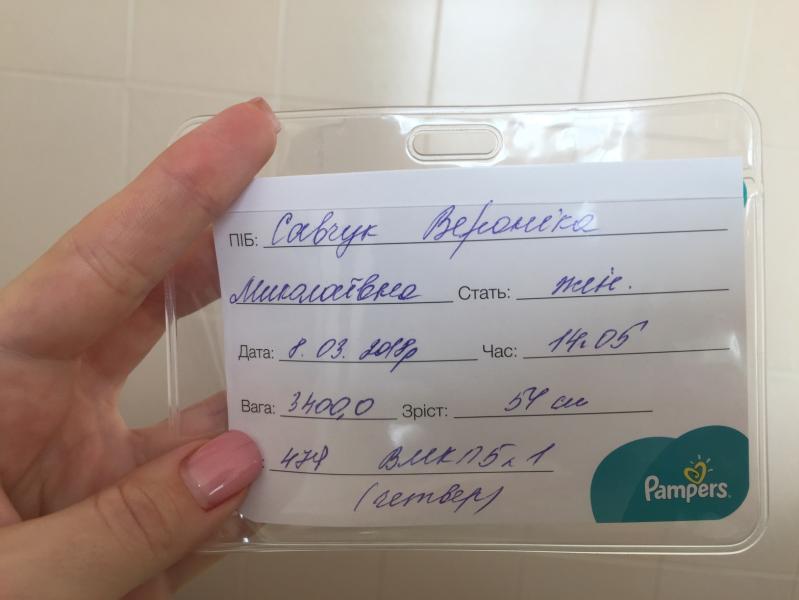 ПІБ: Савчук Вероніка
Миколаївна Стать: жін.
Дата: 8.03.2018р Час: 14.05
Вага: 3400,0 Зріст: 54 см
: ВМКПБ№1
(четвер)
Pampers